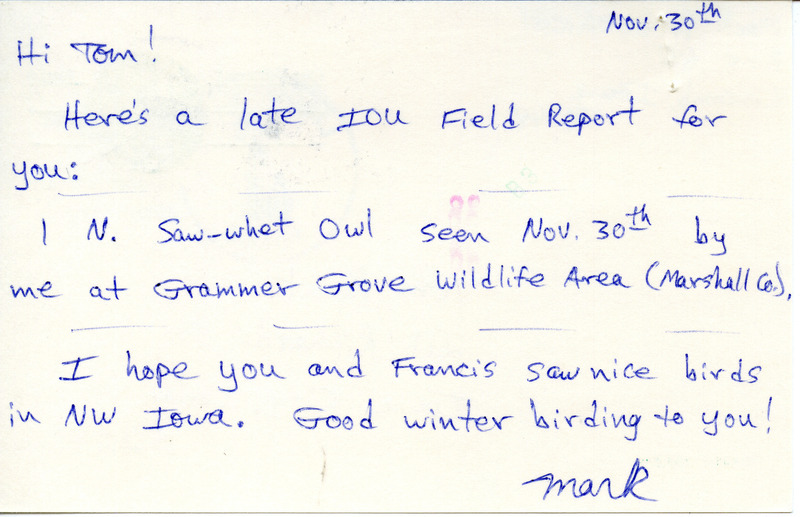 Nov. 30th
Hi Tom!
Here's a late IOU Field Report for
you:
1 N. Saw-whet Owl seen Nov. 30th by
me at Grammer Grove Wildlife Area (Marshall Co.).
I hope you and Francis saw nice birds
in NW Iowa. Good winter birding to you!
Mark